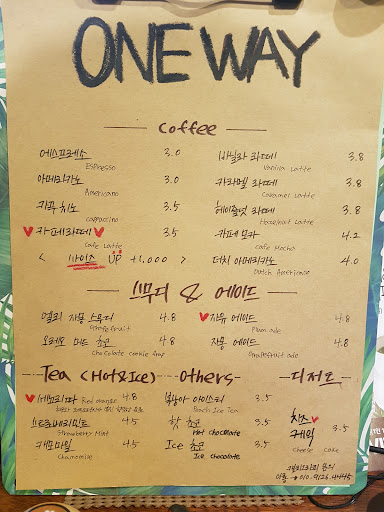 ONE WAY
Coffee
에스프레소 3.0
Espresso
아메리카노 3.0
Americano
카푸치노 3.5
cappuccino
카페라떼 3.5
Cafe Latte
< 사이즈 UP +1,000 >
바닐라 라떼 3.8
Vanilla Latte
카라멜 라떼 3.8
Caramel Latte
헤이즐넛 라떼 3.8
Hazelnut Latte
카페 모카 4.2
Cafe Mocha
더치 아메리카노 4.0
Dutch Americano
스무디 & 에이드
자몽 스무디 4.8
Grapefruit
오레오 민트 초코 4.8
Chocolate cookie
자두 에이드 4.8
Plum ade
자몽 에이드 4.8
Grapefruit ade
Tea (Hot&Ice)
Red orange 4.8
스트로베리민트 4.5
Strawberry Mint
캐모마일 4.5
Chamomile
Others
복숭아 아이스티 3.5
Peach Ice Tea
핫 초코 3.5
Hot chocolate
Ice 초코 3.5
Ice chocolate
디저트
치즈
케익 3.5
cheese cake